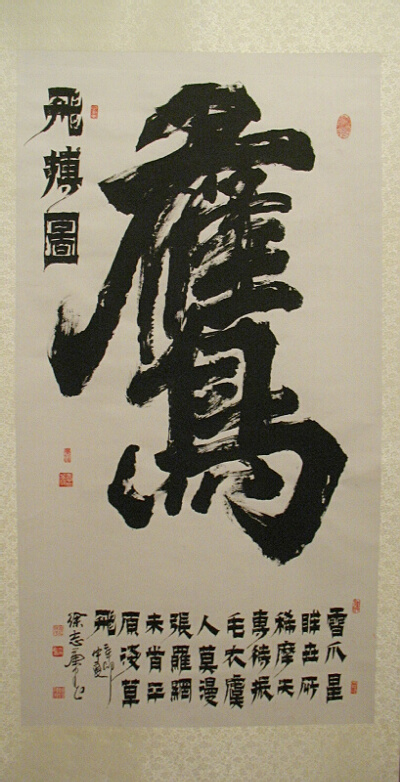 鷹
飛搏圖
雪爪星
眸世所
稀摩天
專待振
毛衣虞
人莫漫
張羅網
未肯平
原淺草
飛
徐志